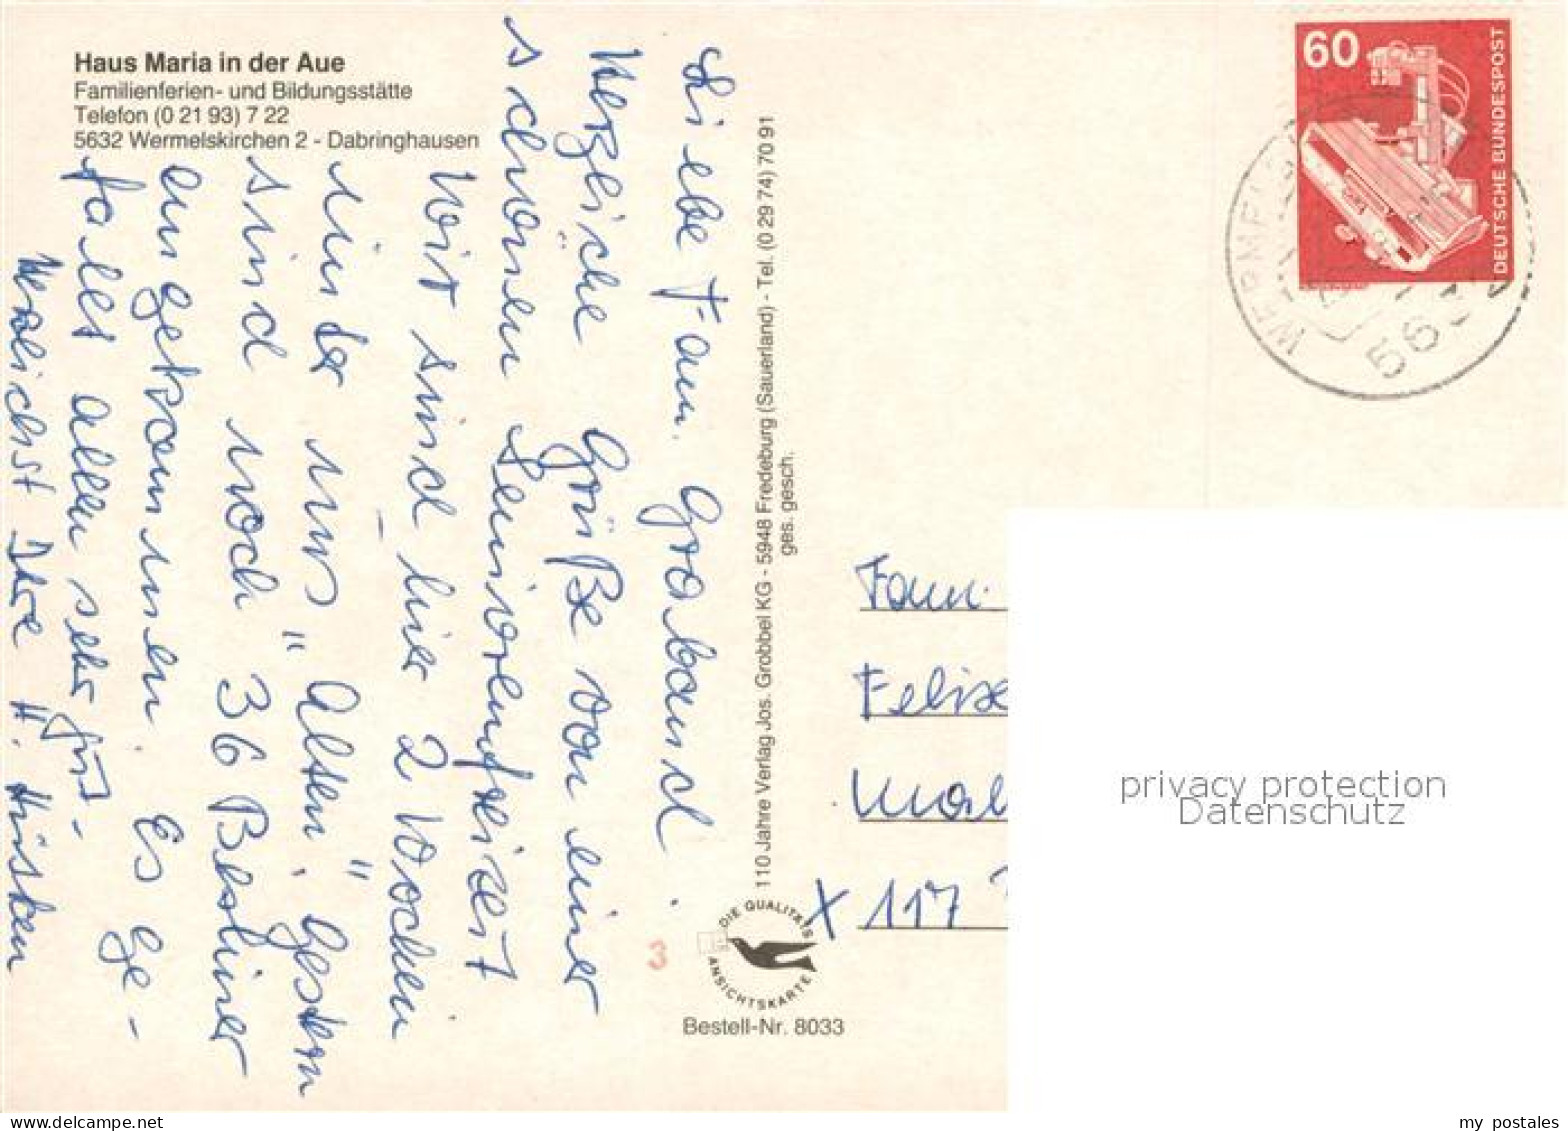 Haus Maria in der Aue
Familienferien- und Bildungsstätte
Telefon (0 21 93) 7 22
5632 Wermelskirchen 2 - Dabringhausen
Liebe Fam. Graband.
Herzliche Grüße von einer
schönen Seniorenfreizeit
Wir sind hier 2 Wochen
unter uns "Alten", gestern
sind noch 36 Berliner
angekommen. Es ge-
fällt allen sehr gut.
Herzlichst Ihre H. Hüsken
110 Jahre Verlag Jos. Grobbel KG - 5948 Fredeburg (Sauerland) - Tel. (0 29 74) 70 91
ges. gesch.
DIE QUALITÄTS
ANSICHTSKARTE
Bestell-Nr. 8033
3
60
DEUTSCHE BUNDESPOST
WERMELS
563
Fam.
Felix
X 117
privacy protection
Datenschutz
my postales